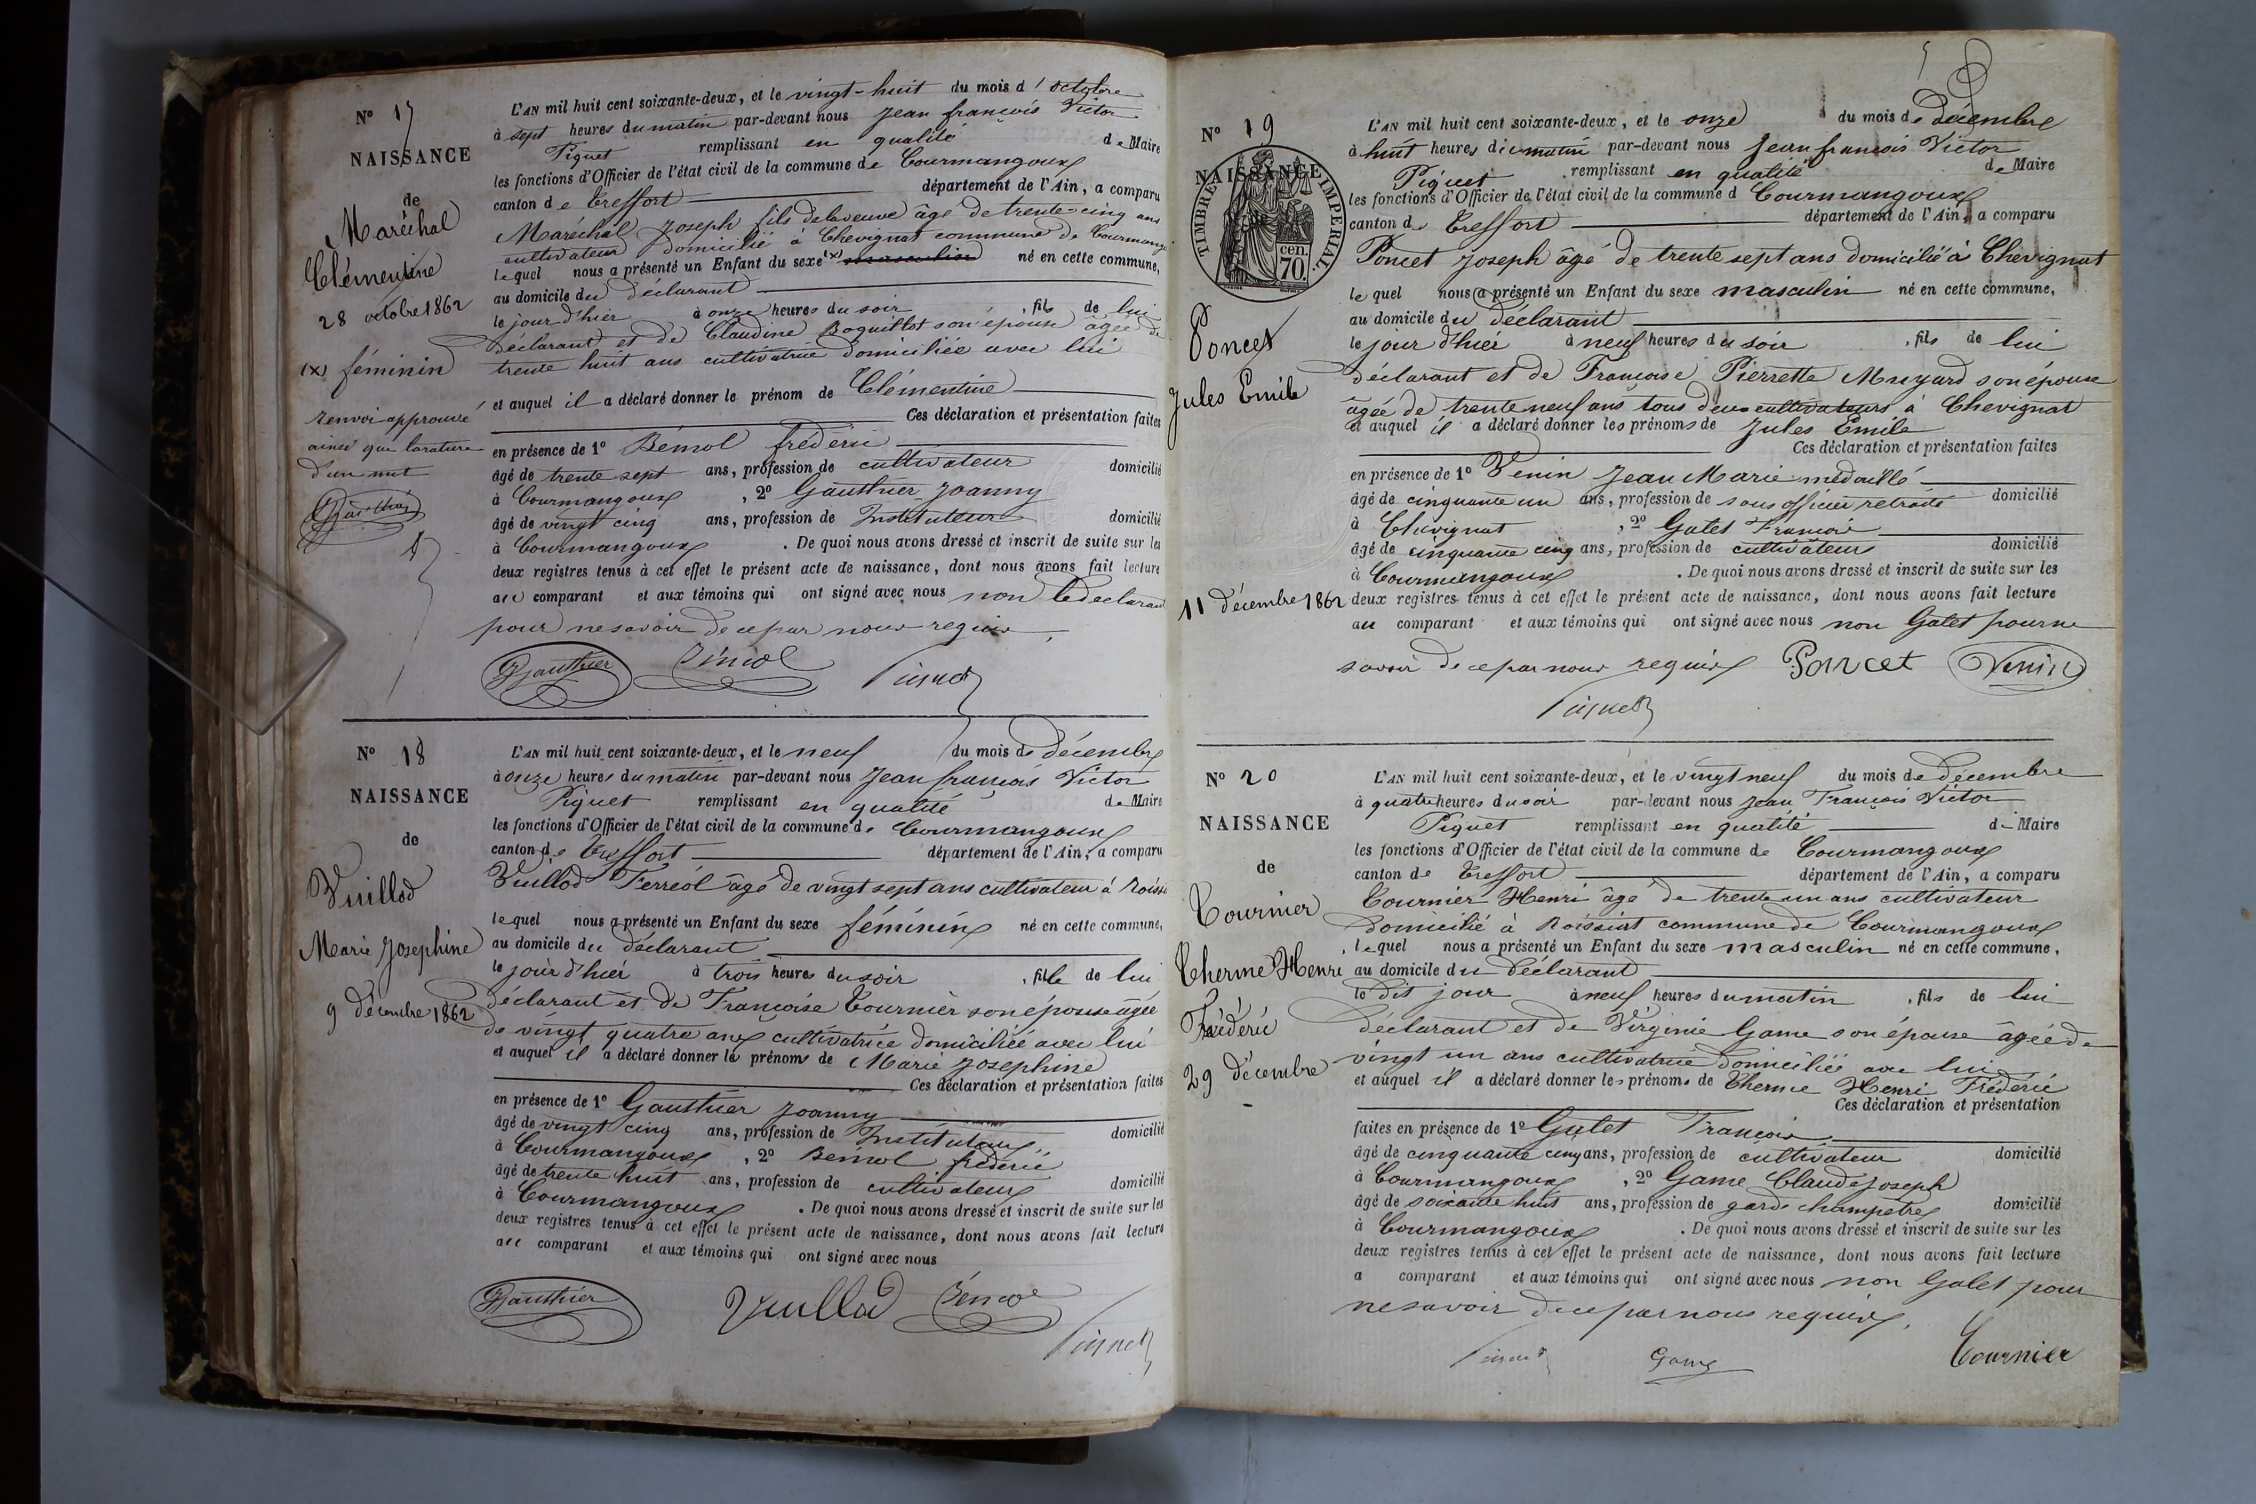 N° 17
NAISSANCE
de
Maréchal
Clémentine
28 octobre 1862
(x) féminin
renvoi approuvé
ainsi que la rature
d'un mot
L'AN mil huit cent soixante-deux, et le vingt-huit du mois d'octobre
à sept heures du matin par-devant nous Jean françois Victor
Piquet remplissant en qualité de Maire
les fonctions d'Officier de l'état civil de la commune de Courmangoux
canton de Treffort département de l'Ain, a comparu
Maréchal Joseph fils de la veuve âgé de trente cinq ans
cultivateur domicilié à Chevignat commune de Courmang
lequel nous a présenté un Enfant du sexe (x) masculin né en cette commune,
au domicile du déclarant
le jour d'hier à onze heures du soir, fils de lui
Déclarant et de Claudine Boquillot son épouse âgée de
trente huit ans cultivatrice domiciliée avec lui
et auquel il a déclaré donner le prénom de Clémentine
Ces déclaration et présentation faites
en présence de 1° Bémol frédéric
âgé de trente sept ans, profession de cultivateur domicilié
à Courmangoux, 2° Gauthier Joanny
âgé de vingt cinq ans, profession de Instituteur domicilié
à Courmangoux. De quoi nous avons dressé et inscrit de suite sur les
deux registres tenus à cet effet le présent acte de naissance, dont nous avons fait lecture
au comparant et aux témoins qui ont signé avec nous non le déclarant
pour ne savoir de ce par nous requis.
Gauthier Bémol Piquet
N° 18
NAISSANCE
de
Vuillod
Marie Josephine
9 décembre 1862
L'AN mil huit cent soixante-deux, et le neuf du mois de décembre
à onze heures du matin par-devant nous Jean françois Victor
Piquet remplissant en qualité de Maire
les fonctions d'Officier de l'état civil de la commune de Courmangoux
canton de Treffort département de l'Ain, a comparu
Vuillod Ferréol âgé de vingt sept ans cultivateur à Roissi
lequel nous a présenté un Enfant du sexe féminin né en cette commune,
au domicile du déclarant
le jour d'hier à trois heures du soir, fille de lui
déclarant et de Françoise Tournier son épouse âgée
de vingt quatre ans cultivatrice domiciliée avec lui
et auquel il a déclaré donner le prénoms de Marie Josephine
Ces déclaration et présentation faites
en présence de 1° Gauthier Joanny
âgé de vingt cinq ans, profession de Instituteur domicilié
à Courmangoux, 2° Bémol frédéric
âgé de trente huit ans, profession de cultivateur domicilié
à Courmangoux. De quoi nous avons dressé et inscrit de suite sur les
deux registres tenus à cet effet le présent acte de naissance, dont nous avons fait lecture
au comparant et aux témoins qui ont signé avec nous
Gauthier Vuillod Bémol
Piquet
N° 19
NAISSANCE
TIMBRE IMPERIAL
70 cen.
Poncet
Jules Emile
11 décembre 1862
L'AN mil huit cent soixante-deux, et le onze du mois de décembre
à huit heures du matin par-devant nous Jean françois Victor
Piquet remplissant en qualité de Maire
les fonctions d'Officier de l'état civil de la commune d Courmangoux
canton de Treffort département de l'Ain, a comparu
Poncet Joseph âgé de trente sept ans domicilié à Chevignat
lequel nous a présenté un Enfant du sexe masculin né en cette commune,
au domicile du déclarant
le jour d'hier à neuf heures du soir, fils de lui
déclarant et de Françoise Pierrette Muyard son épouse
âgée de trente neuf ans tous deux cultivateurs à Chevignat
et auquel il a déclaré donner les prénoms de Jules Emile
Ces déclaration et présentation faites
en présence de 1° Venin Jean Marie médaillé
âgé de cinquante un ans, profession de sous officier retraité domicilié
à Chevignat, 2° Galet François
âgé de cinquante cinq ans, profession de cultivateur domicilié
à Courmangoux. De quoi nous avons dressé et inscrit de suite sur les
deux registres tenus à cet effet le présent acte de naissance, dont nous avons fait lecture
au comparant et aux témoins qui ont signé avec nous non Galet pour ne
savoir de ce par nous requis Poncet Venin
Piquet
N° 20
NAISSANCE
de
Tournier
Therme Henri
Frédéric
29 décembre
L'AN mil huit cent soixante-deux, et le vingt neuf du mois de Décembre
à quatre heures du soir par-devant nous Jean François Victor
Piquet remplissant en qualité de Maire
les fonctions d'Officier de l'état civil de la commune de Courmangoux
canton de Treffort département de l'Ain, a comparu
Tournier Henri âgé de trente un ans cultivateur
domicilié à Roissiat commune de Courmangoux
lequel nous a présenté un Enfant du sexe masculin né en cette commune,
au domicile du Déclarant
le dit jour à neuf heures du matin, fils de lui
déclarant et de Virginie Game son épouse âgée de
vingt un ans cultivatrice domiciliée avec lui
et auquel il a déclaré donner les prénoms de Therme Henri Frédéric
Ces déclaration et présentation
faites en présence de 1° Galet François
âgé de cinquante cinq ans, profession de cultivateur domicilié
à Courmangoux, 2° Game Claude Joseph
âgé de soixante huit ans, profession de garde champetre domicilié
à Courmangoux. De quoi nous avons dressé et inscrit de suite sur les
deux registres tenus à cet effet le présent acte de naissance, dont nous avons fait lecture
a comparant et aux témoins qui ont signé avec nous non Galet pour
ne savoir de ce par nous requis.
Piquet Game Tournier